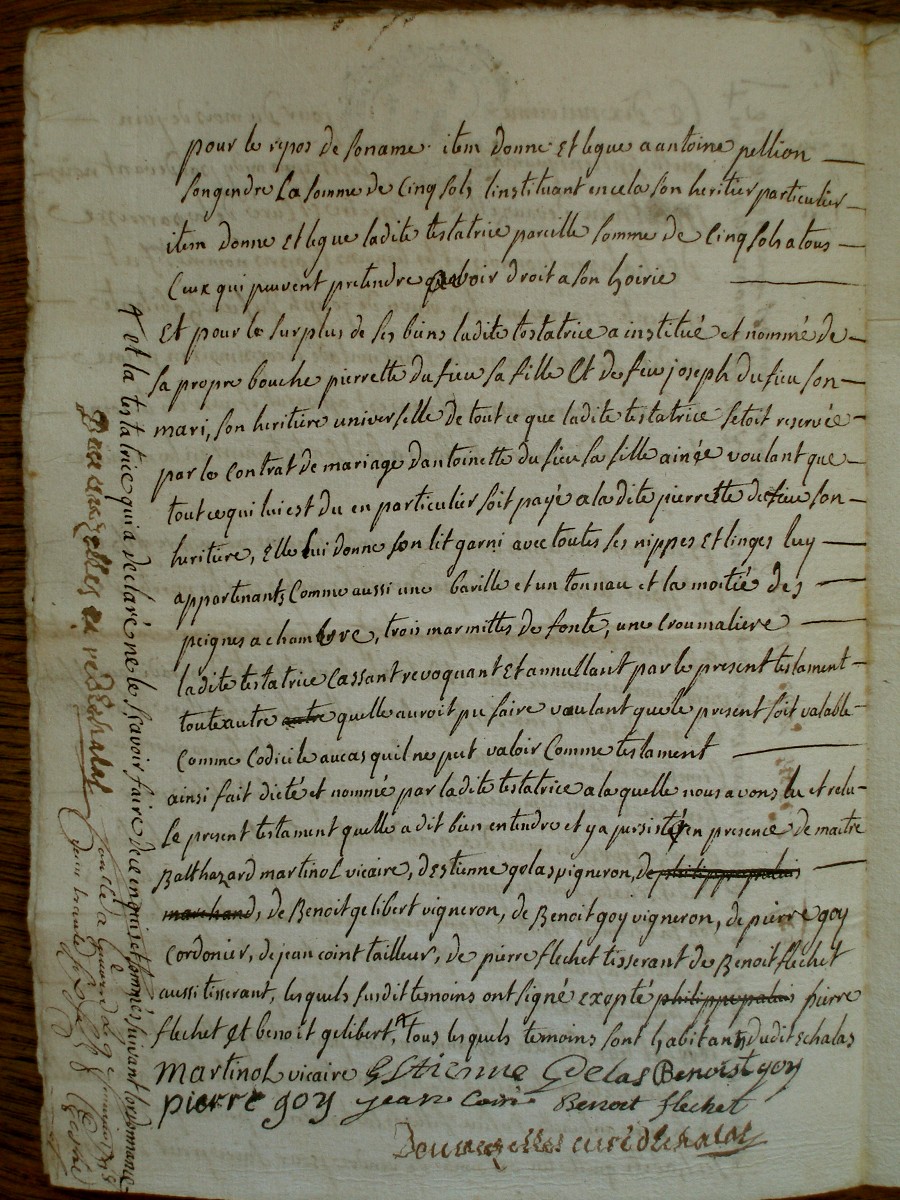 pour le repos de son ame. item donne et legue a antoine pellion
son gendre la somme de cinq sols l'instituant en cela son heritier particulier
item donne et legue ladite testatrice pareille somme de cinq sols a tous
ceux qui peuvent pretendre avoir droit a son hoirie
Et pour le surplus de ses biens ladite testatrice a institué et nommé de
sa propre bouche pierrette du fieu sa fille et de feu joseph du fieu son
mari, son heritiere universelle de tout ce que ladite testatrice setoit reservée
par le contrat de mariage dantoinette du fieu sa fille ainée voulant que
tout ce qui lui est du en particulier soit payé a ladite pierrette du fieu son
heritiere, Elle lui donne son lit garni avec toutes ses nippes et linges luy
appartenants comme aussi une barille et un tonnau et la moitié des
peignes a chambre, trois marmittes de fonte, une croumaliere
ladite testatrice cassant revoquant et annullant par le present testament
toute autre autre quelle auroit pu faire voulant que le present soit valable
comme codicile au cas quil ne put valoir comme testament
ainsi fait dicté et nommé par ladite testatrice a laquelle nous avons lu et relu
le present testament quelle a dit bien entendre et y a persisté en presence de maitre
Balthazard martinol vicaire, destienne gelas vigneron, de philippe palais
marchand, de Benoit gelibert vigneron, de Benoit goy vigneron, de pierre goy
cordonier, de jean coint tailleur, de pierre flechet tisserant de Benoit flechet
aussi tisserant, lesquels susdit temoins ont signé exepté philippe palais pierre
flechet et benoit gelibert, tous lesquels temoins sont habitants dudit Echalas
Martinol vicaire Estienne Gelas Benoist goy
pierre goy jean Coin Benoit flechet
curé dEchalas
et la testatrice qui a declaré ne le scavoir faire de ce enquis et sommés suivant lordonnance
curé dEchalas